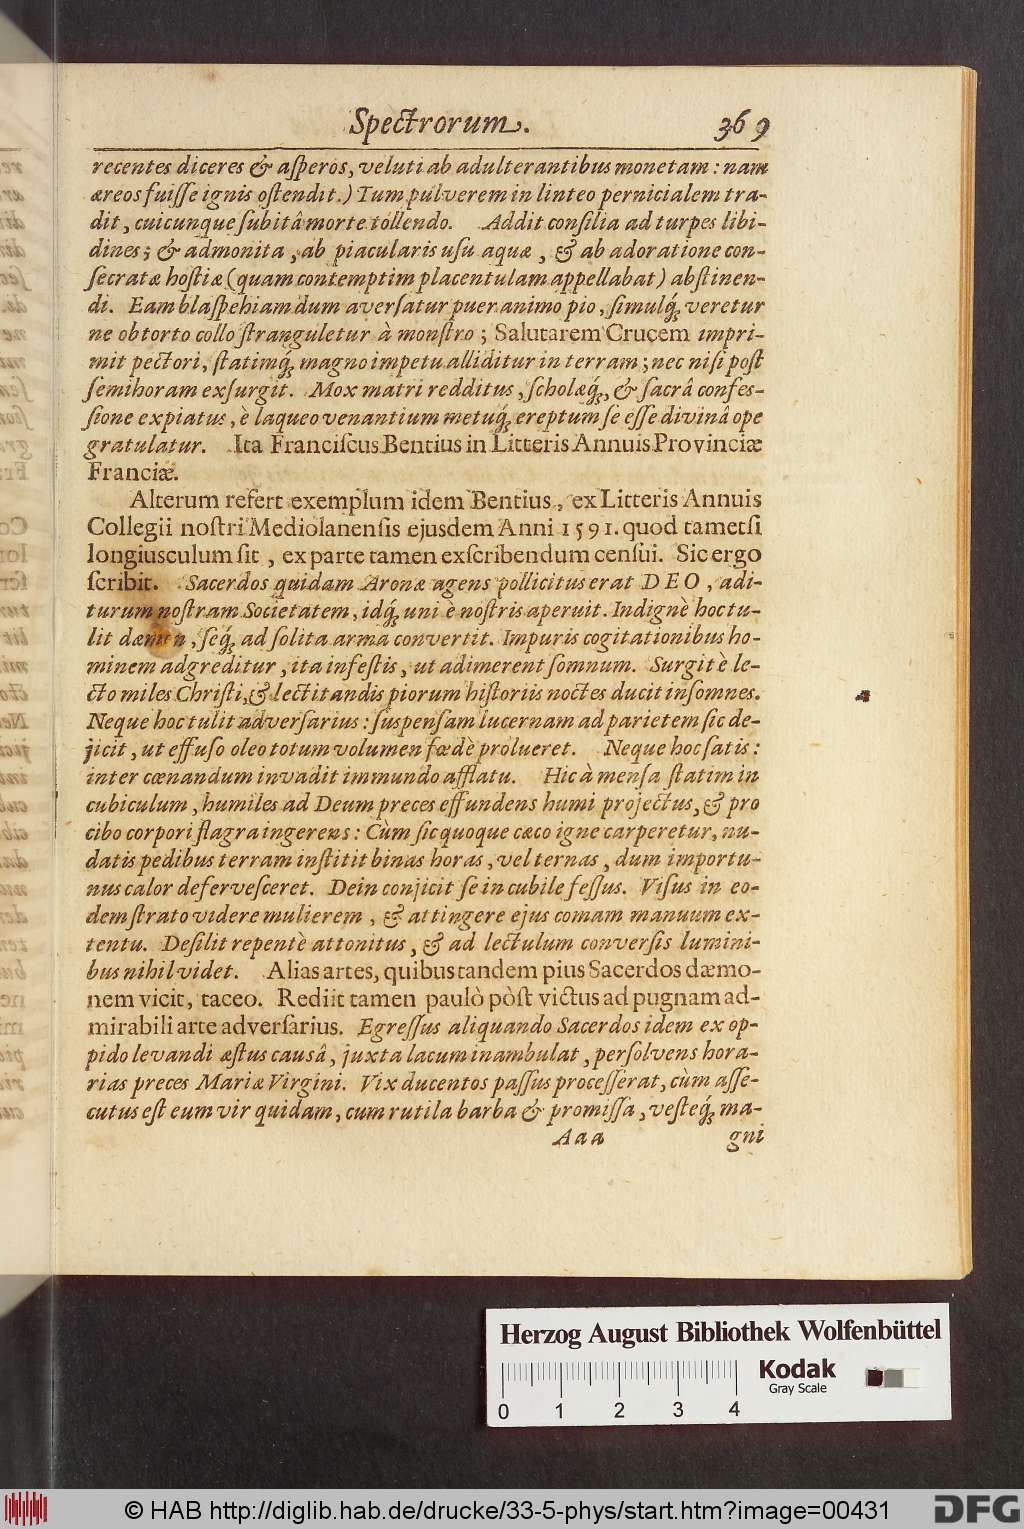 Spectrorum. 369
recentes diceres & aſperos, veluti ab adulterantibus monetam: nam
æreos fuiſſe ignis oſtendit.) Tum pulverem in linteo pernicialem tra-
dit, cuicunque ſubitâ morte tollendo. Addit conſilia ad turpes libi-
dines; & admonita, ab piacularis uſu aquæ, & ab adoratione con-
ſecratæ hoſtiæ (quam contemptim placentulam appellabat) abſtinen-
di. Eam blaſphemiam dum averſatur puer animo pio, ſimulq́; veretur
ne obtorto collo ſtranguletur à monſtro; Salutarem Crucem impri-
mit pectori, ſtatimq́; magno impetu alliditur in terram; nec niſi poſt
ſemihoram exſurgit. Mox matri redditus, ſcholæq́;, & ſacrâ confeſ-
ſione expiatus, è laqueo venantium metuq́; ereptum ſe eſſe divinâ ope
gratulatur. Ita Franciſcus Bentius in Litteris Annuis Provinciæ
Franciæ.
Alterum refert exemplum idem Bentius, ex Litteris Annuis
Collegii noſtri Mediolanenſis ejusdem Anni 1591. quod tametſi
longiusculum ſit, ex parte tamen exſcribendum cenſui. Sic ergo
ſcribit. Sacerdos quidam Aronæ agens pollicitus erat DEO, adi-
turum noſtram Societatem, idq́; uni è noſtris aperuit. Indignè hoc tu-
lit dæmon, ſeq́; ad ſolita arma convertit. Impuris cogitationibus ho-
minem adgreditur, ita infeſtis, ut adimerent ſomnum. Surgit è le-
cto miles Chriſti, & lectitandis piorum hiſtoriis noctes ducit inſomnes.
Neque hoc tulit adverſarius: ſuspenſam lucernam ad parietem ſic de-
jicit, ut effuſo oleo totum volumen fœdè prolueret. Neque hoc ſatis:
inter cœnandum invadit immundo afflatu. Hic à menſa ſtatim in
cubiculum, humiles ad Deum preces effundens humi projectus, & pro
cibo corpori flagra ingerens: Cùm ſic quoque cæco igne carperetur, nu-
datis pedibus terram inſtitit binas horas, vel ternas, dum importu-
nus calor defervesceret. Dein conjicit ſe in cubile feſſus. Viſus in eo-
dem ſtrato videre mulierem, & attingere ejus comam manuum ex-
tentu. Deſilit repentè attonitus, & ad lectulum converſis lumini-
bus nihil videt. Alias artes, quibus tandem pius Sacerdos dæmo-
nem vicit, taceo. Rediit tamen paulò pòſt victus ad pugnam ad-
mirabili arte adverſarius. Egreſſus aliquando Sacerdos idem ex op-
pido levandi æſtus causâ, juxta lacum inambulat, perſolvens hora-
rias preces Mariæ Virgini. Vix ducentos paſſus proceſſerat, cùm aſſe-
cutus eſt eum vir quidam, cum rutila barba & promiſſa, veſteq́; ma-
Aaa gni
Herzog August Bibliothek Wolfenbüttel
Kodak
Gray Scale
0 1 2 3 4
© HAB http://diglib.hab.de/drucke/33-5-phys/start.htm?image=00431
DFG